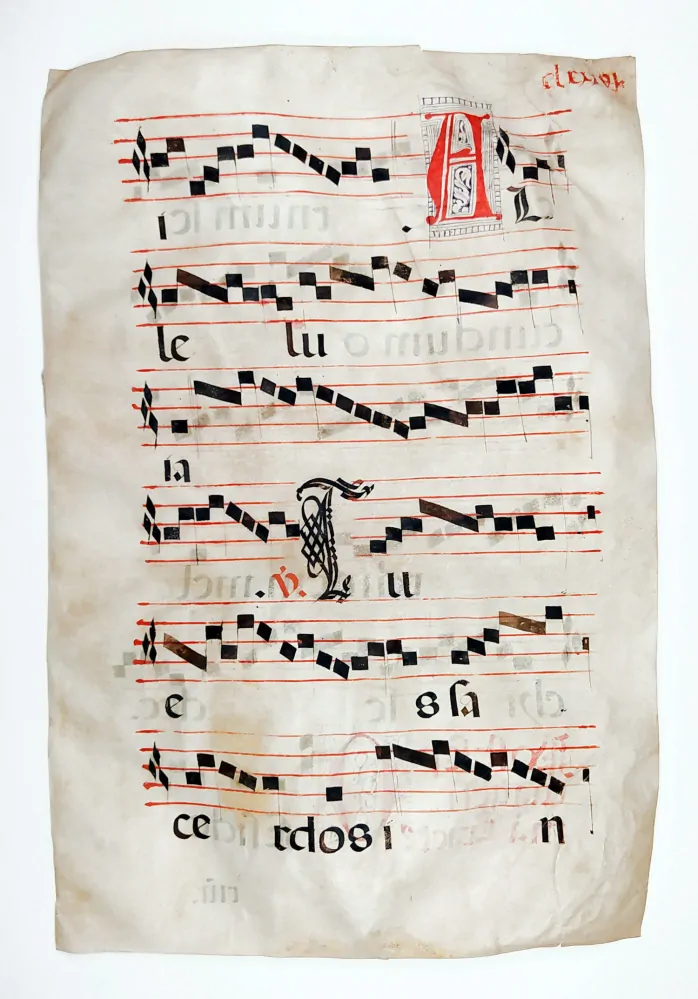 i . A L
le lu
ia
. ℣. T u
e s sa
ce rdos i n